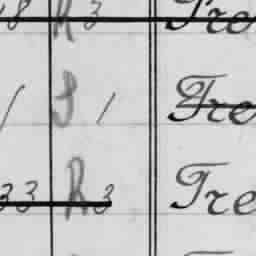 8 R 3 Tre
/ S 1 Tre
33 R 3 Tre